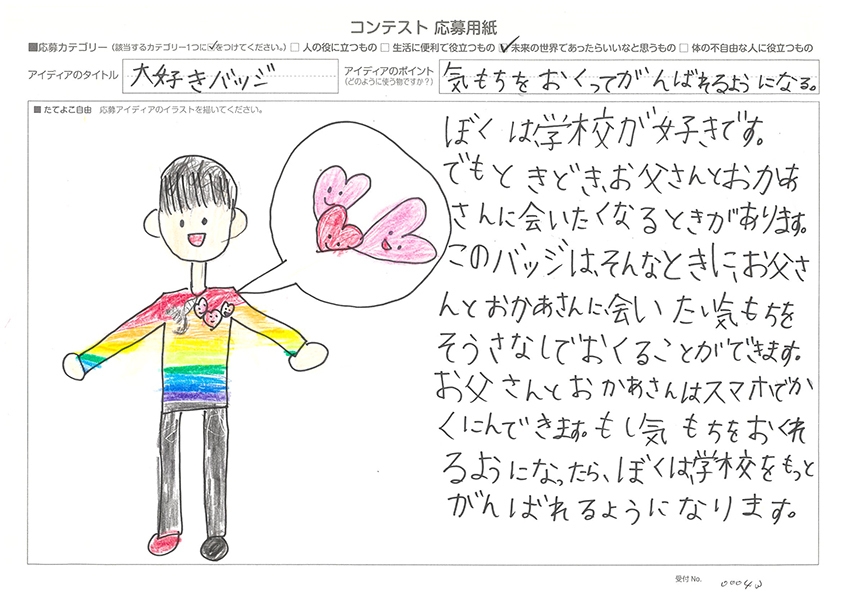 コンテスト 応募用紙
■応募カテゴリー（該当するカテゴリー1つに✓をつけてください。）□ 人の役に立つもの □ 生活に便利で役立つもの ☑ 未来の世界であったらいいなと思うもの □ 体の不自由な人に役立つもの
アイディアのタイトル 大好きバッジ
アイディアのポイント（どのように使う物ですか？） 気もちをおくってがんばれるようになる。
■ たてよこ自由 応募アイディアのイラストを描いてください。
ぼくは、学校が好きです。
でもときどき、お父さんとおかあ
さんに会いたくなるときがあります。
このバッジは、そんなときに、お父さ
んとおかあさんに、会いたい気もちを
そうさなしでおくることができます。
お父さんとおかあさんはスマホでか
くにんできます。もし気もちをおくれ
るようになったら、ぼくは、学校をもっと
がんばれるようになります。
受付No. 00042